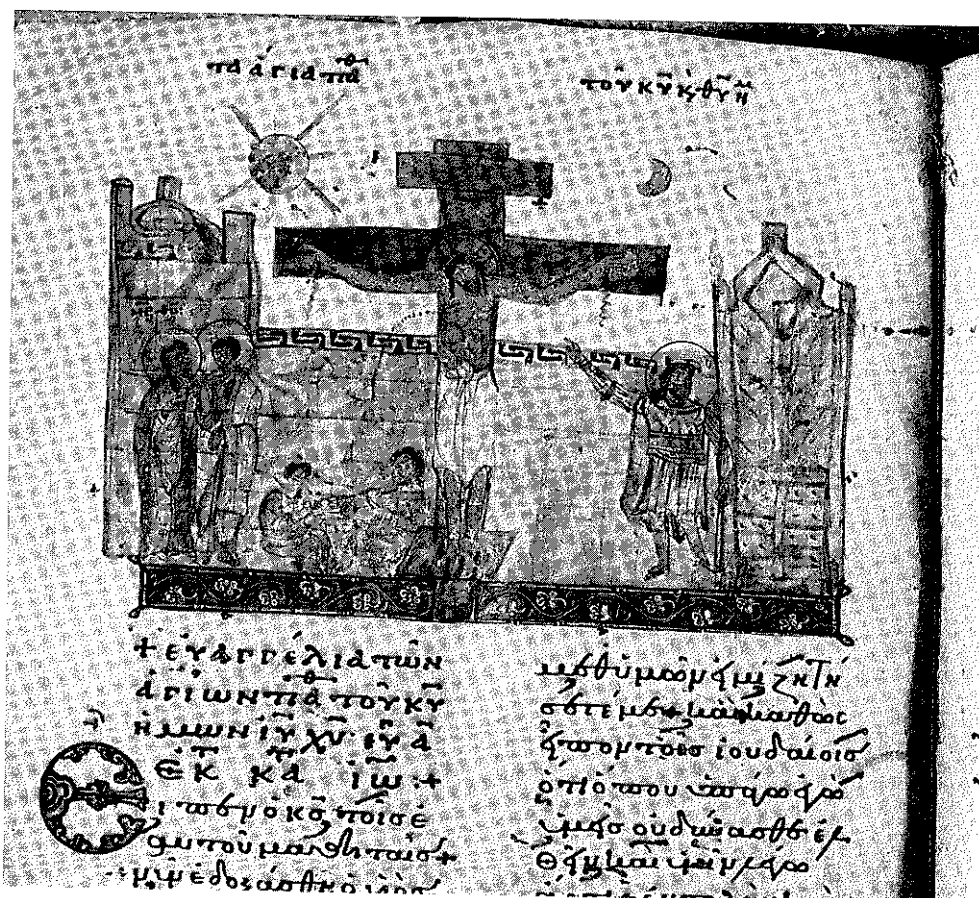 τὰ ἅγια πά̅θ
τοῦ κ̅υ̅ κ̅ θ̅υ̅ ἡ̅μ̅
+ εὐαγγέλια τῶν
ἁγίων πα̅θ τοῦ κ̅υ̅
ἡμῶν ι̅υ̅ χ̅υ̅· εὐα̅ α̅
ἐκ τ̅ κατὰ ἰω̅ :+
Εἶπεν ὁ κ̅ς̅ τοῖς ἑ
αυτοῦ μαθηταῖς +
νῦν ἐδοξάσθη ὁ υἱὸς
μεθ' ὑμῶν εἰμί· ζητή
σετέ με· καὶ καθὼς
εἶπον τοῖς ἰουδαίοις
ὅτι ὅπου ὑπάγω ἐγὼ
ὑμεῖς οὐ δύνασθε ἐλ
θεῖν· καὶ ὑμῖν λέγω